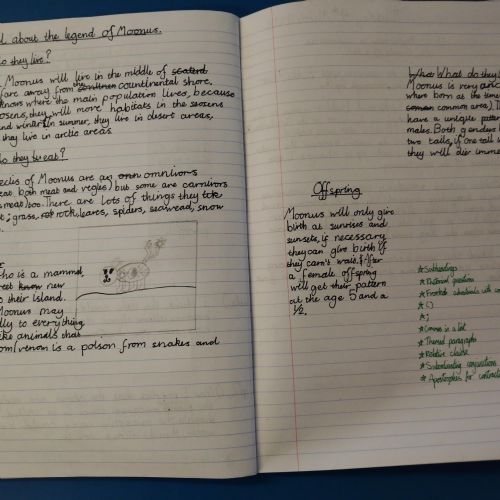 l about the legend of Moonus.
o they live?
Moonus will live in the middle of
fare away from the countinental shore.
knows where the main population lives, because
osens, they will more habitats in the
and winter. In summer, they live in desert areas,
they live in arctic areas
o they eat?
ecies of Moonus are omnivors
eat both meat and vegies) but some are carnivors
meat too. There are lots of things they
t; grass, rock, leaves, spiders, seawead, snow
ho is a mammal,
eet new
o their island.
Moonus may
dly to everything
ike animals that
om/venom is a poison from snakes and
What do they l
Moonus is very
where born at the time
common area). Th
have a uniqe patter
males. Both genders h
two tails, if one tail i
they will die imme
Offspring
Moonus will only give
birth at sunrises and
sunsets, if necessary
they can give birth if
they carn't wait. After
a female offspring
will get their pattern
at the age 5 and a
1/2.
* Subheadings
* Rhetorical questions
* Fronted adverbials with com
* ()
* ;
* Commas in a list
* Themed paragraphs
* Relative clause
* Subordinating conjunctions
* Apostrophes for contracti